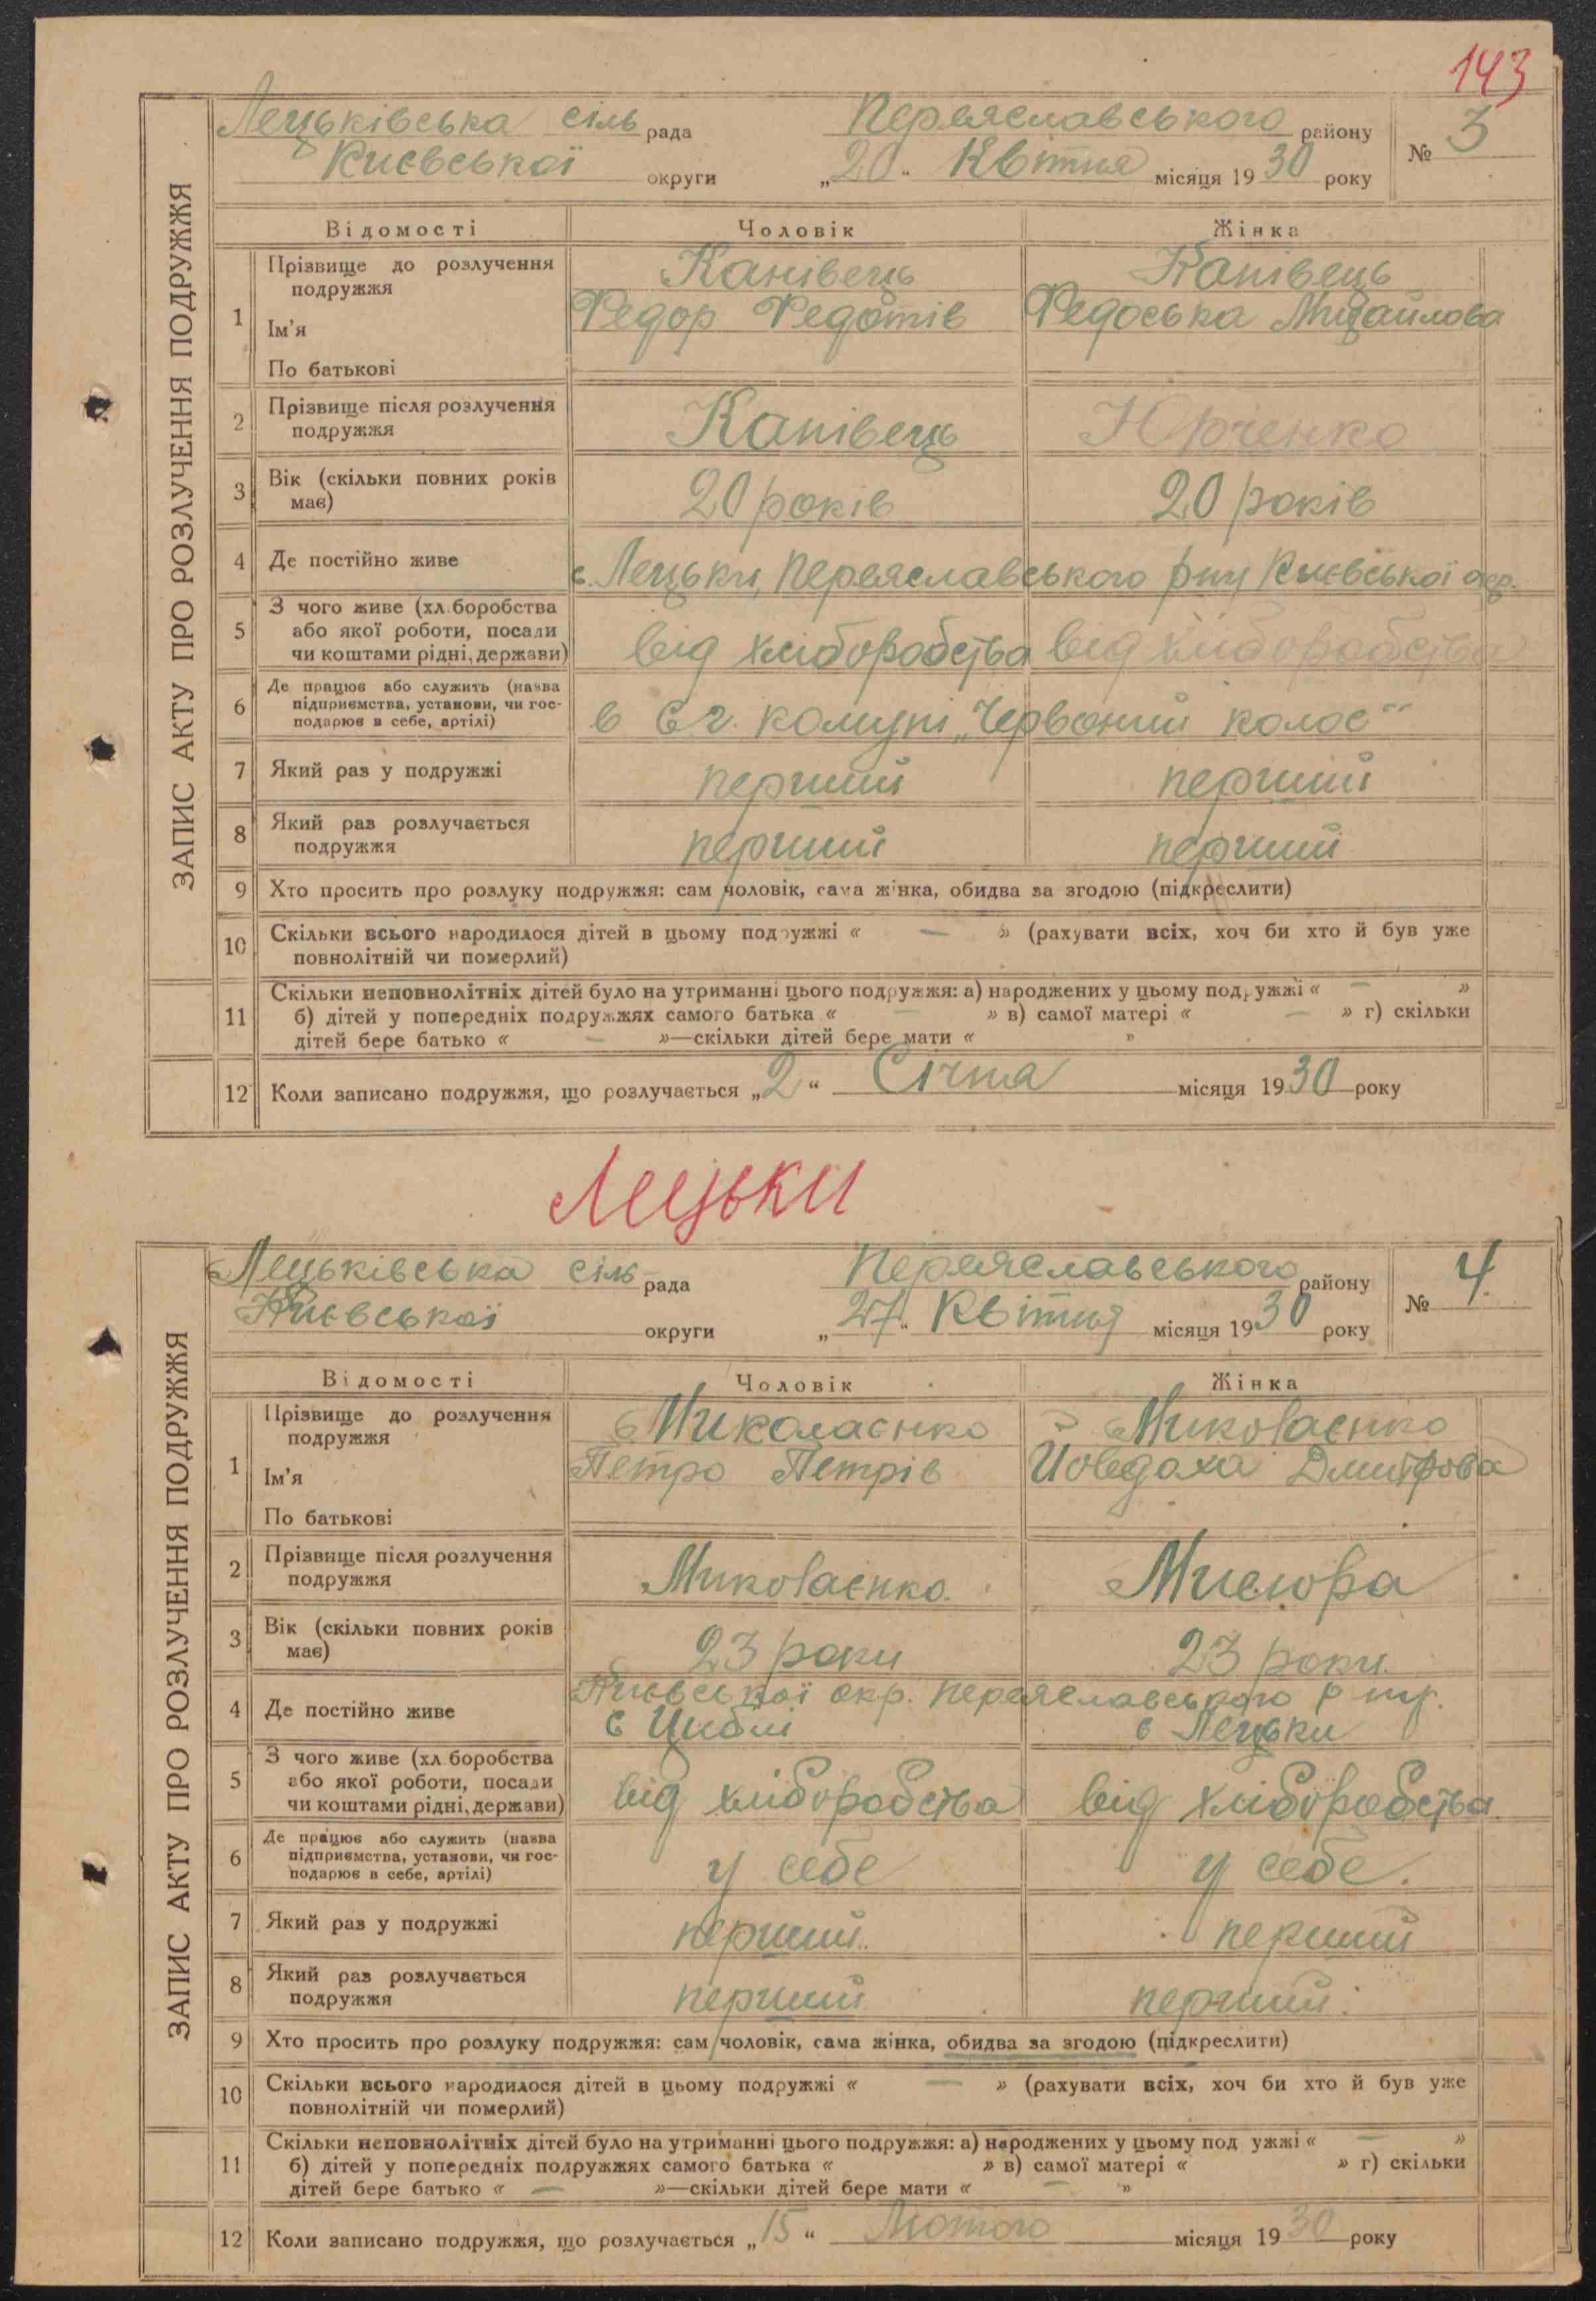 143
ЗАПИС АКТУ ПРО РОЗЛУЧЕННЯ ПОДРУЖЖЯ
Лецьківська сіль рада Переяславського району № 3
Києвської округи „20“ Квітня місяця 1930 року
Відомості Чоловік Жінка
1 Прізвище до розлучення подружжя Канівець Канівець
Ім’я Федор Федотів Федоська Михайлова
По батькові
2 Прізвище після розлучення подружжя Канівець Юрченко
3 Вік (скільки повних років має) 20 років 20 років
4 Де постійно живе с. Лецьки, Переяславського рну Києвської окр.
5 З чого живе (хл боробства або якої роботи, посади чи коштами рідні, держави) від хліборобства від хліборобства
6 Де працює або служить (назва підприємства, установи, чи господарює в себе, артілі) в с.г. комуні „Червоний колос“
7 Який раз у подружжі перший перший
8 Який раз розлучається подружжя перший перший
9 Хто просить про розлуку подружжя: сам чоловік, сама жінка, обидва за згодою (підкреслити)
10 Скільки всього народилося дітей в цьому подружжі « — » (рахувати всіх, хоч би хто й був уже
повнолітній чи померлий)
11 Скільки неповнолітніх дітей було на утриманні цього подружжя: а) народжених у цьому подружжі « — »
б) дітей у попередніх подружжях самого батька « — » в) самої матері « — » г) скільки
дітей бере батько « — »—скільки дітей бере мати « »
12 Коли записано подружжя, що розлучається „2“ Січня місяця 1930 року
Лецьки
ЗАПИС АКТУ ПРО РОЗЛУЧЕННЯ ПОДРУЖЖЯ
Лецьківська сіль рада Переяславського району № 4.
Києвської округи „27“ Квітня місяця 1930 року
Відомості Чоловік Жінка
1 Прізвище до розлучення подружжя Миколаєнко Миколаєнко
Ім’я Петро Петрів Йовдоха Дмитрова
По батькові
2 Прізвище після розлучення подружжя Миколаєнко Мисюра
3 Вік (скільки повних років має) 23 роки 23 роки
4 Де постійно живе Києвської окр. Переяславського р ну.
с Циблі с Лецьки
5 З чого живе (хл боробства або якої роботи, посади чи коштами рідні, держави) від хліборобства від хліборобства
6 Де працює або служить (назва підприємства, установи, чи господарює в себе, артілі) у себе у себе.
7 Який раз у подружжі перший перший
8 Який раз розлучається подружжя перший перший
9 Хто просить про розлуку подружжя: сам чоловік, сама жінка, обидва за згодою (підкреслити)
10 Скільки всього народилося дітей в цьому подружжі « — » (рахувати всіх, хоч би хто й був уже
повнолітній чи померлий)
11 Скільки неповнолітніх дітей було на утриманні цього подружжя: а) народжених у цьому под ужжі « — »
б) дітей у попередніх подружжях самого батька « » в) самої матері « » г) скільки
дітей бере батько « — »—скільки дітей бере мати « — »
12 Коли записано подружжя, що розлучається „15“ Лютого місяця 1930 року